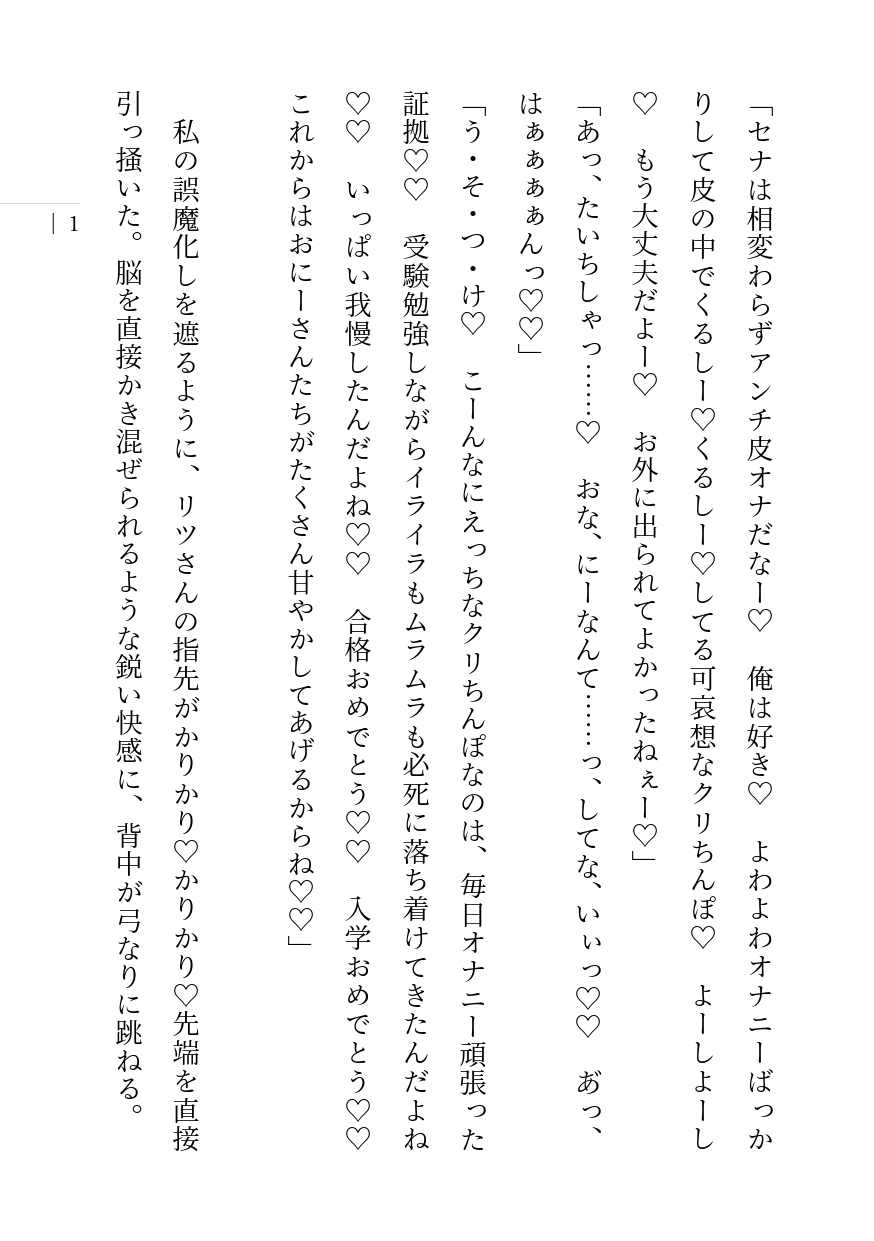 「セナは相変わらずアンチ皮オナだなー♡　俺は好き♡　よわよわオナニーばっか
りして皮の中でくるしー♡くるしー♡してる可哀想なクリちんぽ♡　よーしよーし
♡　もう大丈夫だよー♡　お外に出られてよかったねぇー♡」
「あっ、たいちしゃっ……♡　おな、にーなんて……っ、してな、いぃっ♡♡　あ゛っ、
はぁぁぁぁんっ♡♡」
「う・そ・つ・け♡　こーんなにえっちなクリちんぽなのは、毎日オナニー頑張った
証拠♡♡　受験勉強しながらイライラもムラムラも必死に落ち着けてきたんだよね
♡♡　いっぱい我慢したんだよね♡♡　合格おめでとう♡♡　入学おめでとう♡♡
これからはおにーさんたちがたくさん甘やかしてあげるからね♡♡」
私の誤魔化しを遮るように、リツさんの指先がかりかり♡かりかり♡先端を直接
引っ掻いた。脳を直接かき混ぜられるような鋭い快感に、背中が弓なりに跳ねる。
| 1